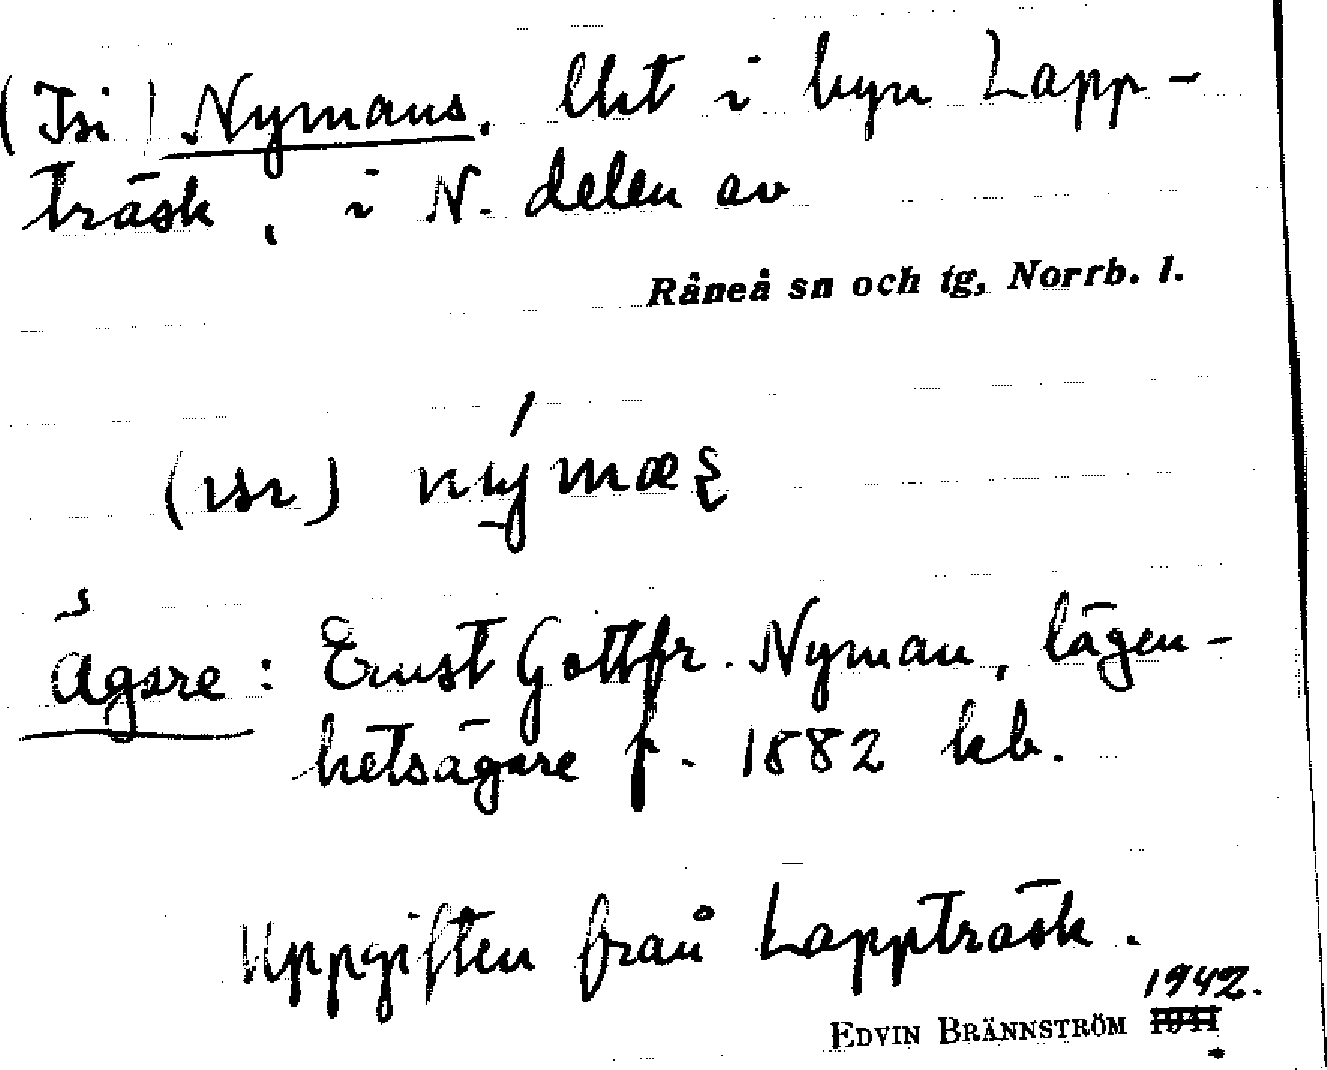 (Isi) Nymans. Lht i byn Lapp-
träsk, i N. delen av
Råneå sn och tg, Norrb. l.
Ägare: Ernst Gottfr. Nyman, lägen-
hetsägare f. 1882 kb.
Uppgiften från Lappträsk.
1942.
EDVIN BRÄNNSTRÖM 1941